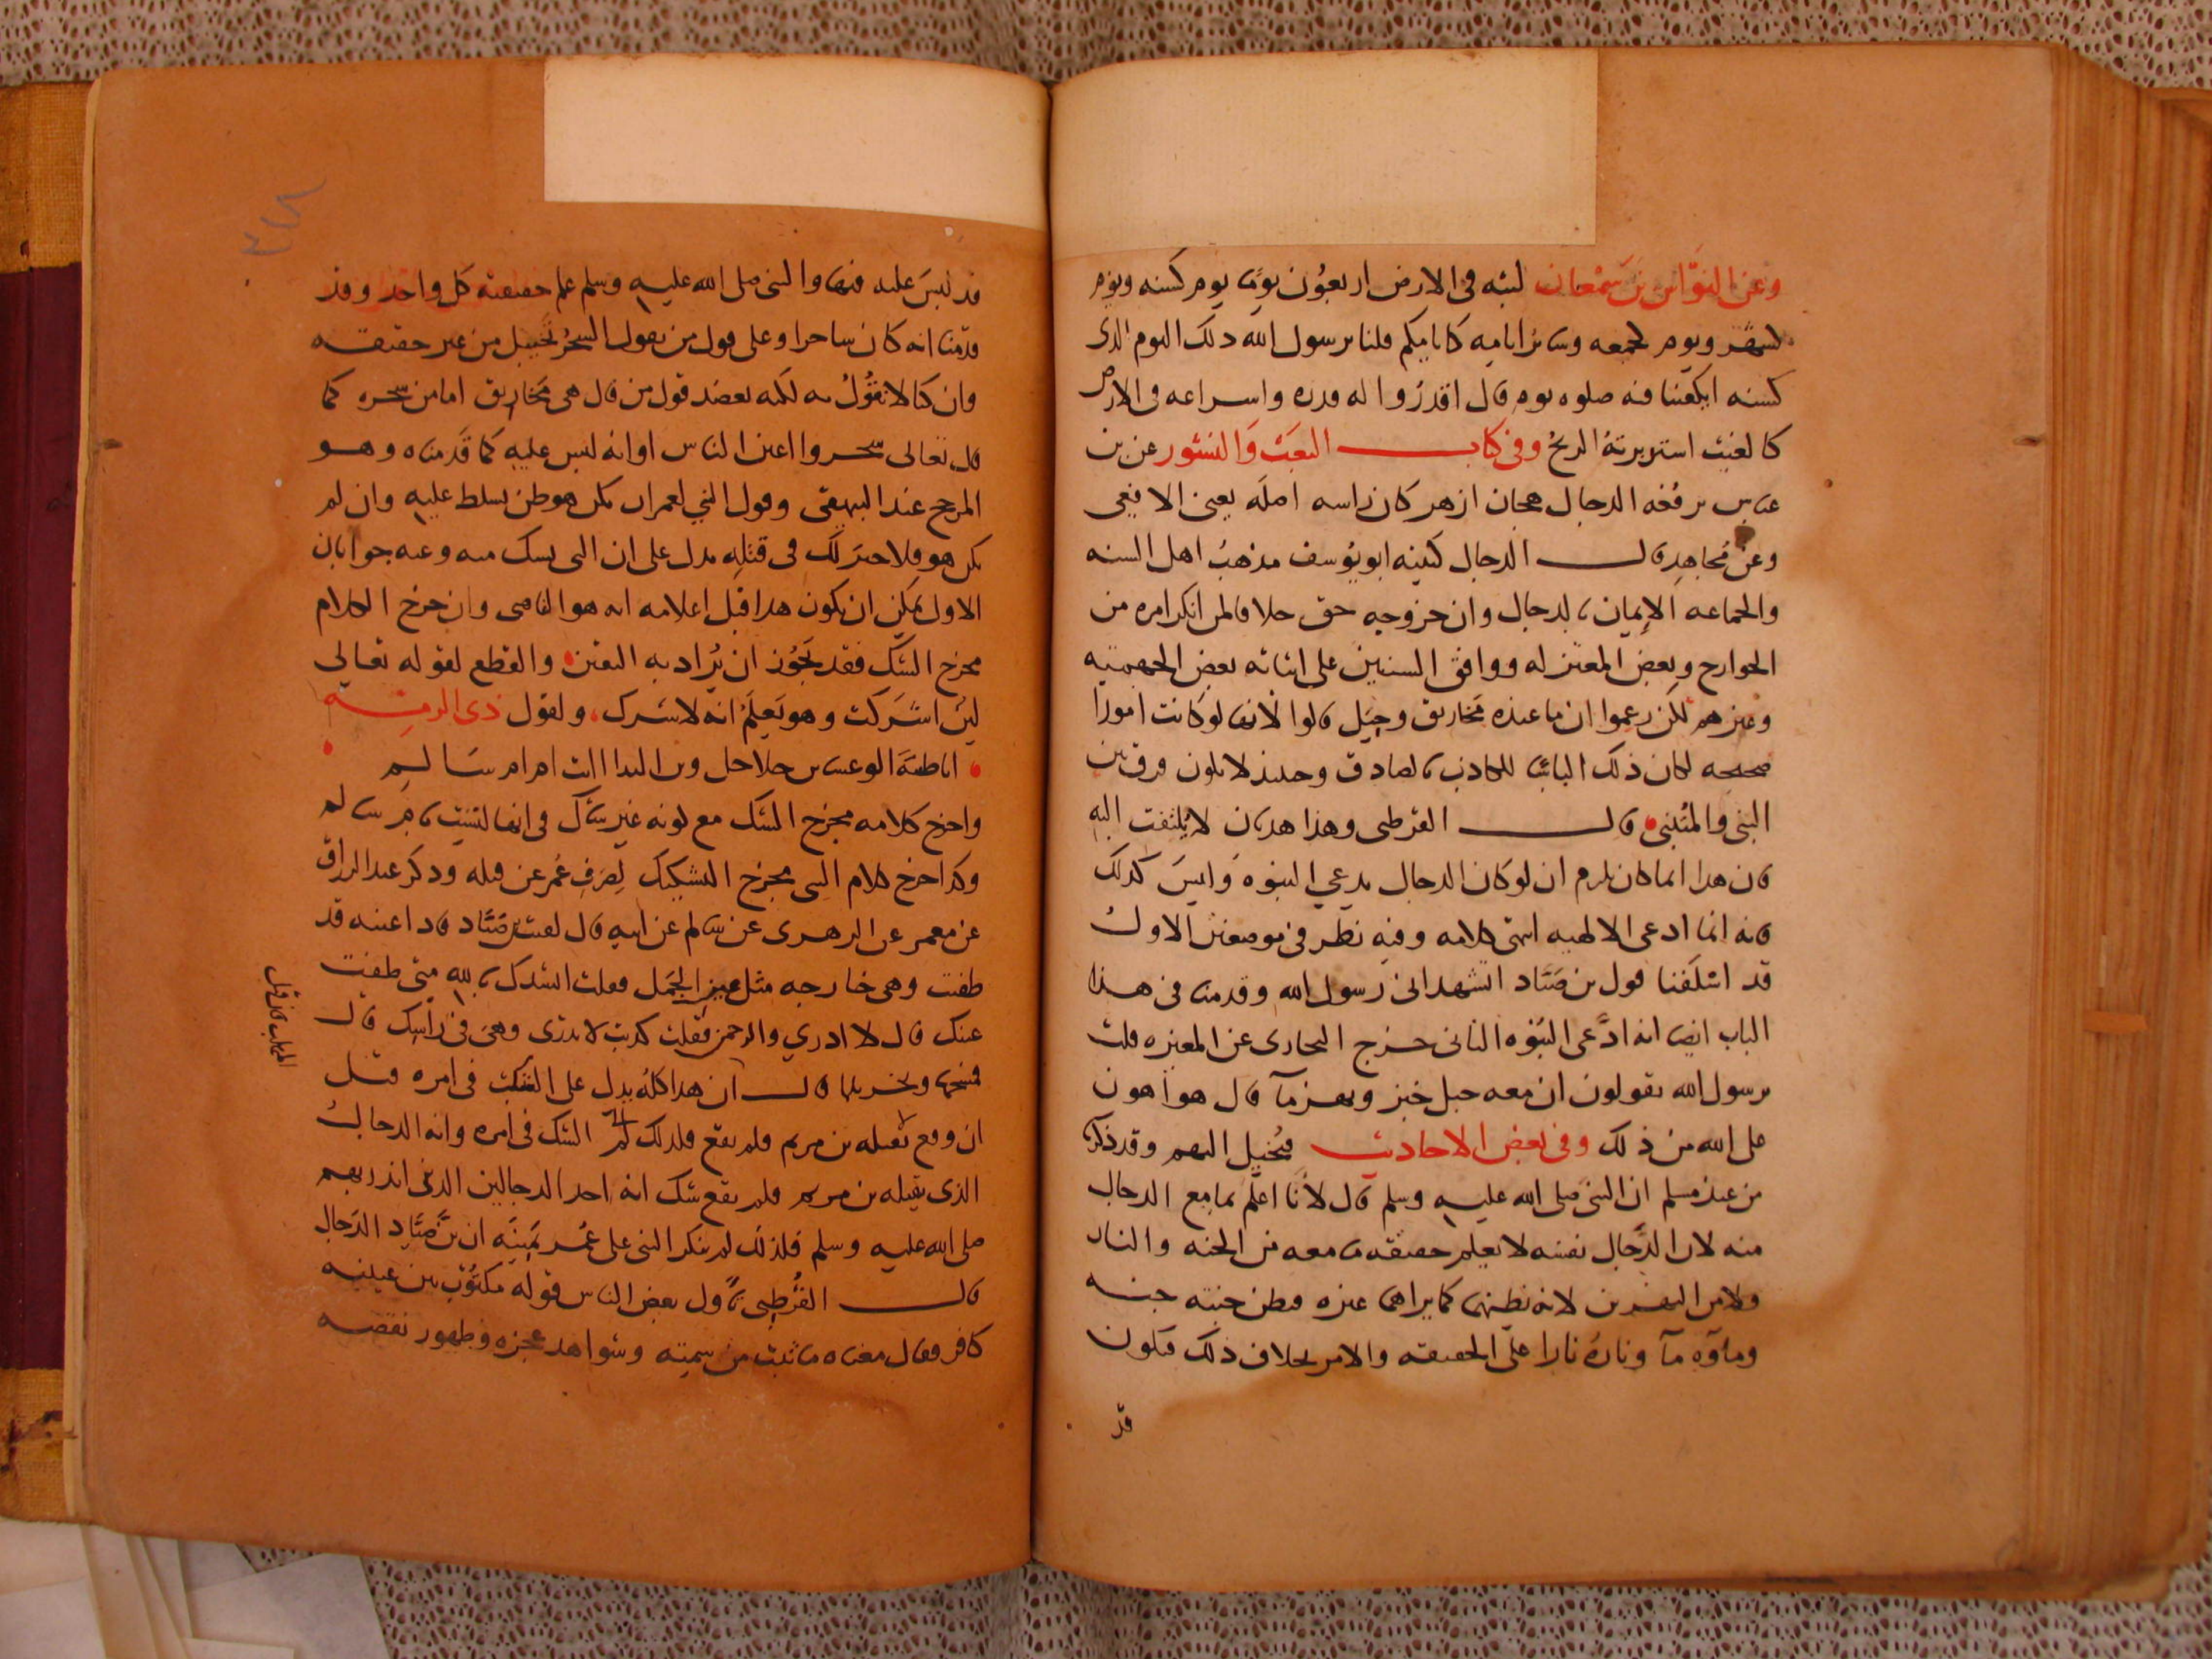 وعن النوّاس بن سَمْعان لبثه فى الارض اربعُون يومًا يوم كسنه ويوم
كشهر ويوم كجمعه وسائر ايامه كايامكم قلنا يرسول الله ذلك اليوم الذى
كسنه ايكفينا فيه صلوه يوم قال اقدرُوا له قدره واسراعه فى الارض
كالغيث استدبرته الريحُ وفى كتاب البَعَث وَالنشور عن بن
عباس يرفعه الدجال هجان ازهر كان راسه اصلَه يعنى الافعى
وعن مُجاهدٍ قال الدجال كنيته ابو يُوسف مذهبُ اهل السنه
والجماعه الإيمان بالدجال وان خروجه حق خلافا لمن انكر امره من
الخوارج وبعض المعتزله ووافق السنيين على اثباته بعض الجهميه
وغيرهم لكن زعموا ان ما عنده مَخاريق وحِيَل قالوا لانها لو كانت امورًا
صحيحه لكان ذلك الباسًا للكاذب بالصادق وحينيذ لا يكون فرق بين
النبى والمُتنبى قال القرطبى وهذا هذيان لا يُلتفت اليه
فان هذا انما كان يلزم ان لو كان الدجال يدعي النبوه وَليسَ كذلك
فانه انما ادعى الالهيه انتهى كلامه وفيه نظر فى موضعين الاول
قد اسْلَفنا قول بن صَيَّاد اتشهد انى رسول الله وقدمنا فى هذا
الباب ايضا انه ادَّعى النُبوه الثانى خرج البخارى عن المغيره قلت
يرسول الله يقولون ان معه جبل خبز ونهر مآ قال هو اهون
على الله من ذلك وفى بعض الاحاديث فيُخيل اليهم وقد ذكرنا
من عند مسلم ان النبى صلى الله عليه وسلم قال لأنَا اعلَم بما مع الدجال
منه لان الدَّجال نفسه لا يعلم حقيقه ما معه من الجنه والنار
ولا من النهرين لانه يظنهما كما يراهما غيره فيظن جنته جنه
ومآوَه مآ ونارهُ نارا على الحقيقه والامر بخلاف ذلك فيكون
قد
قد لبسَ عليه فيها والنبى صلى الله عليه وسلم علم حقيقة كل واحد وقد
قدّمنا انه كان ساحرا وعلى قول من يقول السحرُ تخييل من غير حقيقه
وان كنا لا نقُولُ به لكنه يعضد قول من قال هى مَخاريق اما من سحره كما
قال تعالى سحروا اعين الناس او انه لبس عليه كما قَدمناه وهو
المرجح عند البيهقى وقول النبي لعمر ان يكن هو فلن تسلط عليه وان لم
يكن هو فلا خيرَ لك فى قتلِه يدل على ان النبى يشك فيه وعنه جوابان
الاول يمكن ان يكون هذا قبل اعلامه انه هو الثانى وان خرج الكلام
مخرج الشك فقد يجُوز ان يُراد به اليقين والقطع لقوله تعالى
ليِن اشْرَكت وهو يَعلَمُ انه لا يشرك، ولقول ذى الرمّه
ايا ظبيَة الوعساء بين جلاجل وبين النقا اانت ام ام سَالِم
واخرج كلامه مخرج الشك مع كونه غير شاك فى انها ليست بام سالم
وكذا خرج كلام النبى مخرج التشكيك لِصَرف عُمر عن قتله وذكر عبد الرزاق
عن معمر عن الزهرى عن سالم عن ابيه قال لقيت بن صَيَّاد فاذا عينه قد
طفيت وهى خارجه مثل عين الجَمل فقلت انشدك بالله متى طفيت
عينك قال لا ادري والرحمن فقلت كذبت لا تدرى وهى فى رأسك قال
فمسحها ونخر ثلاثا قال ان هذا كله يدل على الشك فى امره قتل
ان وقع بقتله بن مريم فلم يقع فلذلك لم الشك فى امره وانه الدجال
الذى يقتله بن مريم فلم يقع شك انه احد الدجالين الذين انذر بهم
صلى الله عليه وسلم فلذلك لم ينكر النبى على عُمر يَمينَه ان بن صَيَّاد الدَجال
قال القُرطبي تأول بعض الناس قوله مكتُوب بين عينيه
كافر فقال معناه ما ثبت من سمته وشواهد عجزه وظهور نقصه